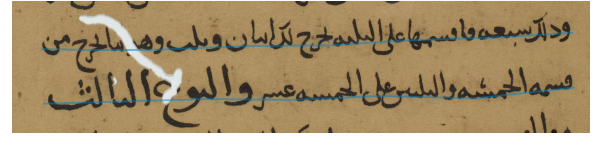 وذلك سبعه فاقسمها على الثلثه يخرج لك اثنان وثلث وهو ما يخرج من
قسمه الخمسه والثلثين على الخمسه عشر والنوع الثالث